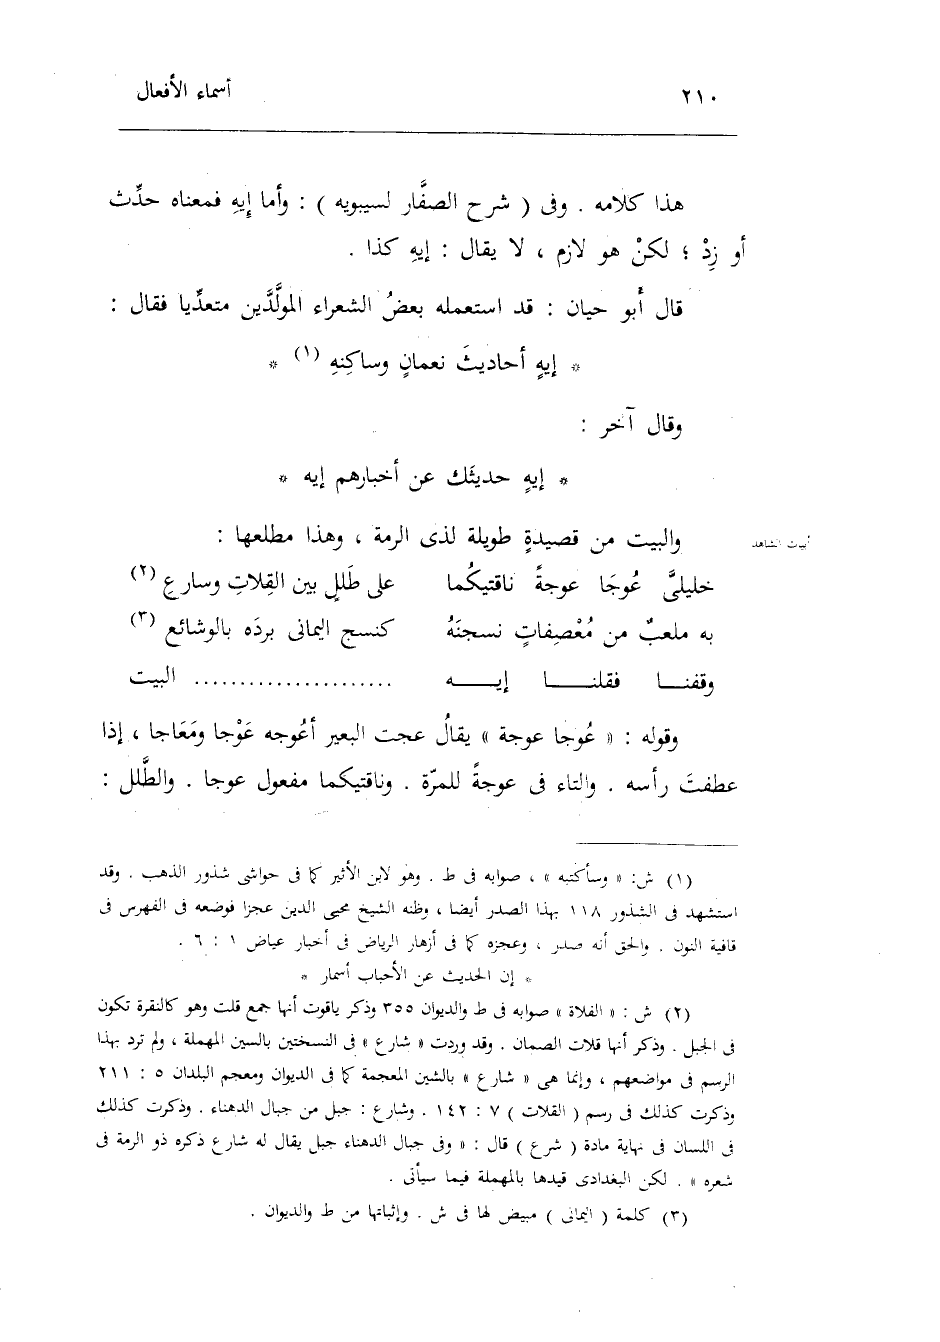 ٢١٠ أسماء الأفعال
هذا كلامه . وفى ( شرح الصفَّار لسيبويه ) : وأما إيهِ فمعناه حدِّث
أو زِدْ ؛ لكنْ هو لازم ، لا يقال : إيهِ كذا .
قال أبو حيان : قد استعمله بعضُ الشعراء المولَّدَين متعدِّيا فقال :
* إيهٍ أحاديثَ نعمانٍ وساكِنهِ (١) *
وقال آخر :
* إيهٍ حديثَك عن أخبارهم إيه *
أبيات الشاهد
والبيت من قصيدةٍ طويلة لذى الرمة ، وهذا مطلعها :
خليلىَّ عُوجَا عوجةً ناقتيكُما على طَللٍ بين القِلاتِ وسارعِ (٢)
به ملعبٌ من مُعْصِفاتٍ نسجنَهُ كنسج اليمانى بردَه بالوشائع (٣)
وقفنـــا فقلنـــا إيـــه ...................... البيت
وقوله : « عُوجا عوجة » يقالُ عجت البعير أعُوجه عَوْجا ومَعَاجا ، إذا
عطفتَ رأسه . والتاء فى عوجةً للمرّة . وناقتيكما مفعول عوجا . والطَّلل :
(١) ش: « وسأكتبه » ، صوابه فى ط . وهو لابن الأثير كما فى حواشى شذور الذهب . وقد
استشهد فى الشذور ١١٨ بهذا الصدر أيضا ، وظنه الشيخ محيى الدين عجزا فوضعه فى الفهرس فى
قافية النون . والحق أنه صدر ، وعجزه كما فى أزهار الرياض فى أخبار عياض ١ : ٦ .
* إن الحديث عن الأحباب أسمار *
(٢) ش : « الفلاة » صوابه فى ط والديوان ٣٥٥ وذكر ياقوت أنها جمع قلت وهو كالنقرة تكون
فى الجبل . وذكر أنها قلات الصمان . وقد وردت « شارع » فى النسختين بالسين المهملة ، ولم ترد بهذا
الرسم فى مواضعهم ، وإنما هى « شارع » بالشين المعجمة كما فى الديوان ومعجم البلدان ٥ : ٢١١
وذكرت كذلك فى رسم ( القلات ) ٧ : ١٤٢ . وشارع : جبل من جبال الدهناء . وذكرت كذلك
فى اللسان فى نهاية مادة ( شرع ) قال : « وفى جبال الدهناء جبل يقال له شارع ذكره ذو الرمة فى
شعره » . لكن البغدادى قيدها بالمهملة فيما سيأتى .
(٣) كلمة ( اليمانى ) مبيض لها فى ش . وإثباتها من ط والديوان .